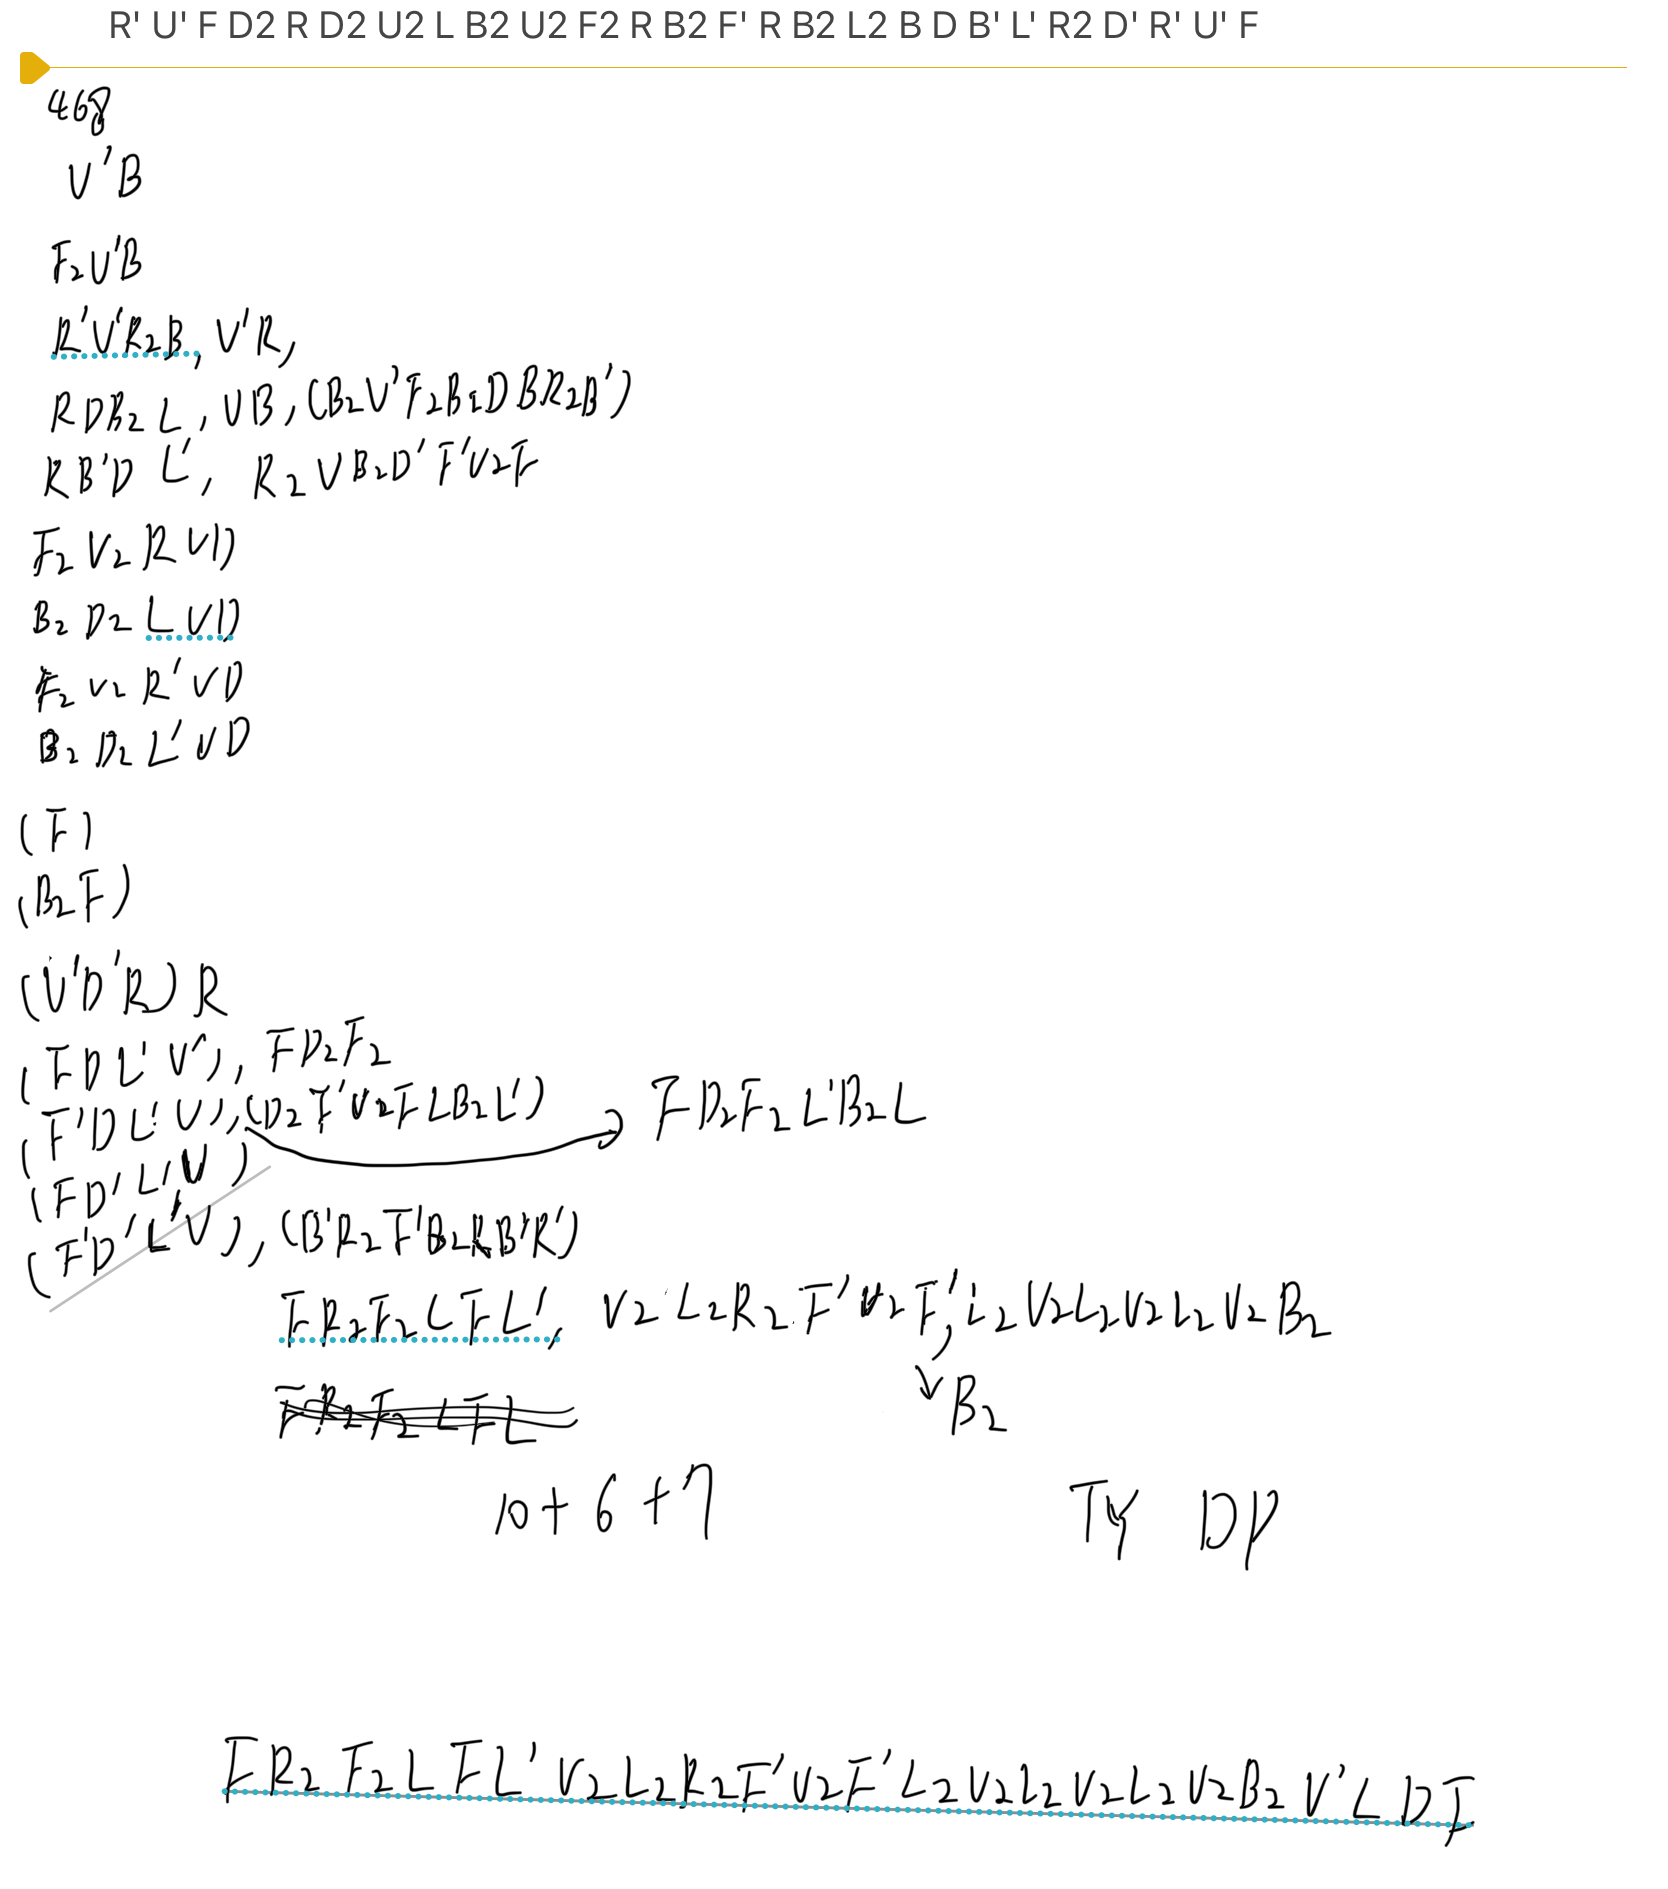 R' U' F D2 R D2 U2 L B2 U2 F2 R B2 F' R B2 L2 B D B' L' R2 D' R' U' F
468
U'B
F2U'B
R'U'R2B, U'R,
RDB2L, UB, (B2U'F2B2DBR2B')
RB'DL', R2UB2D'F'U2F
F2U2RUD
B2D2LUD
F2U2R'UD
B2D2L'UD
(F)
(B2F)
(U'D'R)R
(FDL'U'), FD2F2
(F'DL'U), (D2F'U2FLB2L') FD2F2L'B2L
(FD'L'U)
(F'D'L'U), (B'R2F'B2RB'R')
FR2F2LFL', U2L2R2F'U2F', L2U2L2U2L2U2B2
FR2F2LFL B2
10+6+7 DP
FR2F2LFL'U2L2R2F'U2F'L2U2L2U2L2U2B2U'LDF